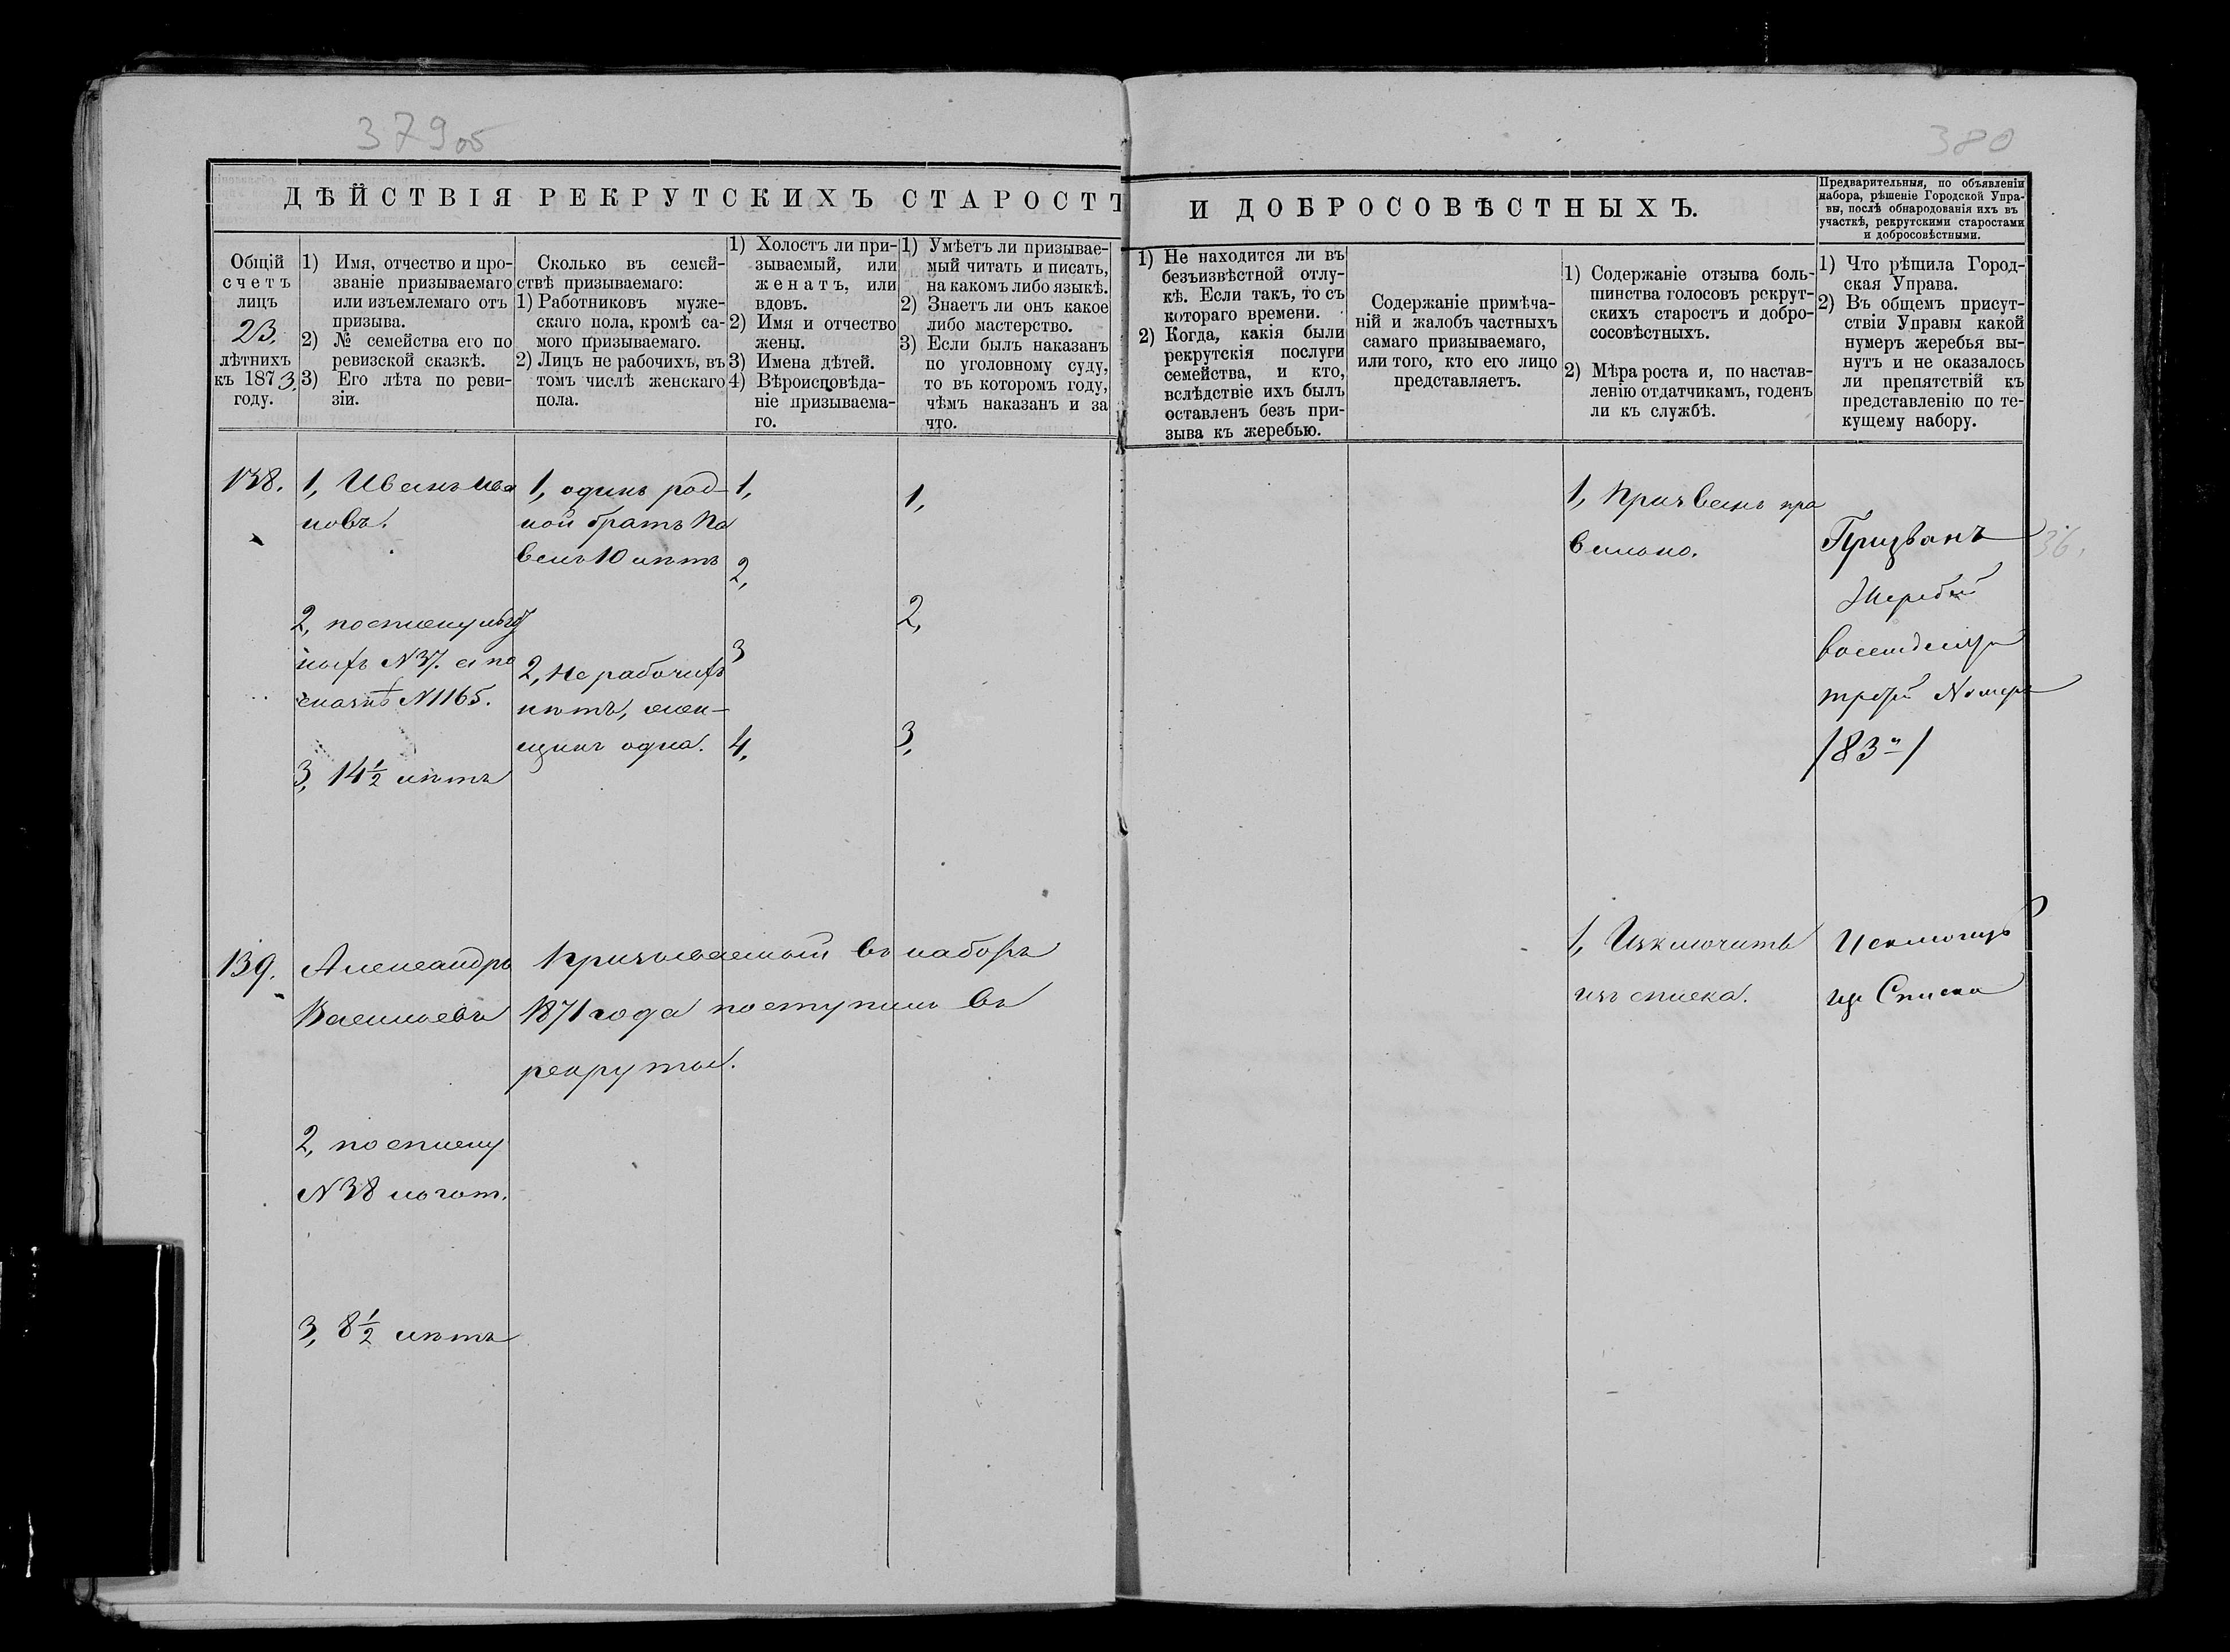 379 об
380
ДѢЙСТВІЯ РЕКРУТСКИХЪ СТАРОСТЪ
И ДОБРОСОВѢСТНЫХЪ.
Предварительныя, по объявленіи
набора, рѣшеніе Городской Упра-
вы, послѣ обнародованія ихъ въ
участкѣ, рекрутскими старостами
и добросовѣстными.
Общій
счетъ
лицъ
23.
лѣтнихъ
къ 1873
году.
1) Имя, отчество и про-
званіе призываемаго
или изъемлемаго отъ
призыва.
2) № семейства его по
ревизской сказкѣ.
3) Его лѣта по реви-
зіи.
Сколько въ семей-
ствѣ призываемаго:
1) Работниковъ муже-
скаго пола, кромѣ са-
мого призываемаго.
2) Лицъ не рабочихъ, въ
томъ числѣ женскаго
пола.
1) Холостъ ли при-
зываемый, или
женатъ, или
вдовъ.
2) Имя и отчество
жены.
3) Имена дѣтей.
4) Вѣроисповѣда-
ніе призываема-
го.
1) Умѣетъ ли призывае-
мый читать и писать,
на какомъ либо языкѣ.
2) Знаетъ ли онъ какое
либо мастерство.
3) Если былъ наказанъ
по уголовному суду,
то въ которомъ году,
чѣмъ наказанъ и за
что.
1) Не находится ли въ
безъизвѣстной отлу-
кѣ. Если такъ, то съ
котораго времени.
2) Когда, какія были
рекрутскія послуги
семейства, и кто,
вслѣдствіе ихъ былъ
оставленъ безъ при-
зыва къ жеребью.
Содержаніе примѣча-
ній и жалобъ частныхъ
самаго призываемаго,
или того, кто его лицо
представляетъ.
1) Содержаніе отзыва боль-
шинства голосовъ рекрут-
скихъ старостъ и добро-
сосовѣстныхъ.
2) Мѣра роста и, по настав-
ленію отдатчикамъ, годенъ
ли къ службѣ.
1) Что рѣшила Город-
ская Управа.
2) Въ общемъ присут-
ствіи Управы какой
нумеръ жеребья вы-
нутъ и не оказалось
ли препятствій къ
представленію по те-
кущему набору.
138.
1, Иванъ Ива
новъ.
2, по списку
№37. а по
сказкѣ №1165.
3, 14½ лѣтъ
1, одинъ род-
ной братъ Па
велъ 10 лѣтъ
2, Не рабочихъ
нѣтъ, жен-
щинъ одна.
1,
2,
3
4,
1,
2,
3,
1, Призванъ пра
вильно.
Призванъ
Жеребій
восемдесятъ
третій Номеръ
/83й/
36.
139.
Александръ
Васильевъ
2, по списку
№38
3, 8½ лѣтъ
Призываемый въ наборъ
1871 года поступилъ въ
рекруты.
1, Изключить
изъ списка.
Исключить
изъ Списка